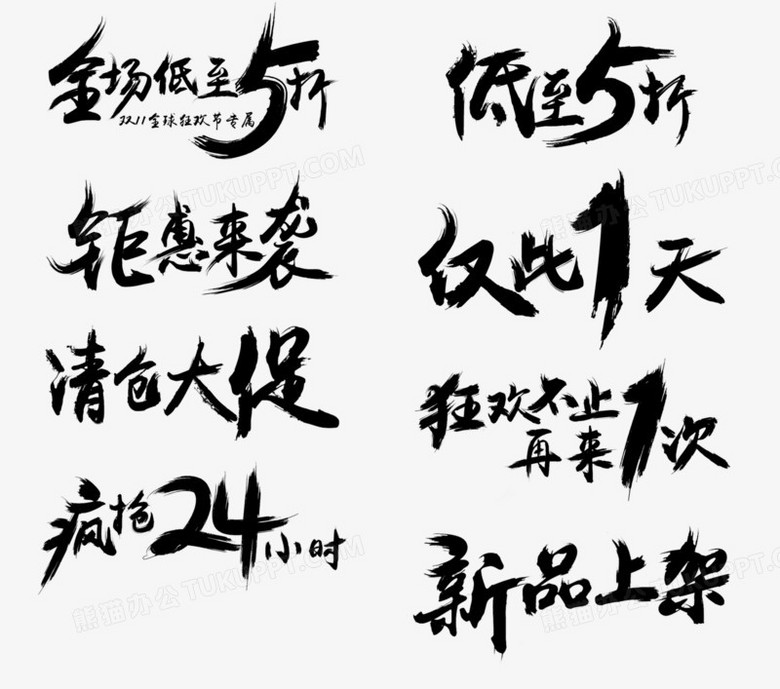 全场低至5折
双11全球狂欢节专属
钜惠来袭
清仓大促
疯抢24小时
低至5折
仅此1天
狂欢不止
再来1次
新品上架
熊猫办公 TUKUPPT.COM
熊猫办公 TUKUPPT.COM
熊猫办公 TUKUPPT.COM
熊猫办公 TUKUPPT.COM